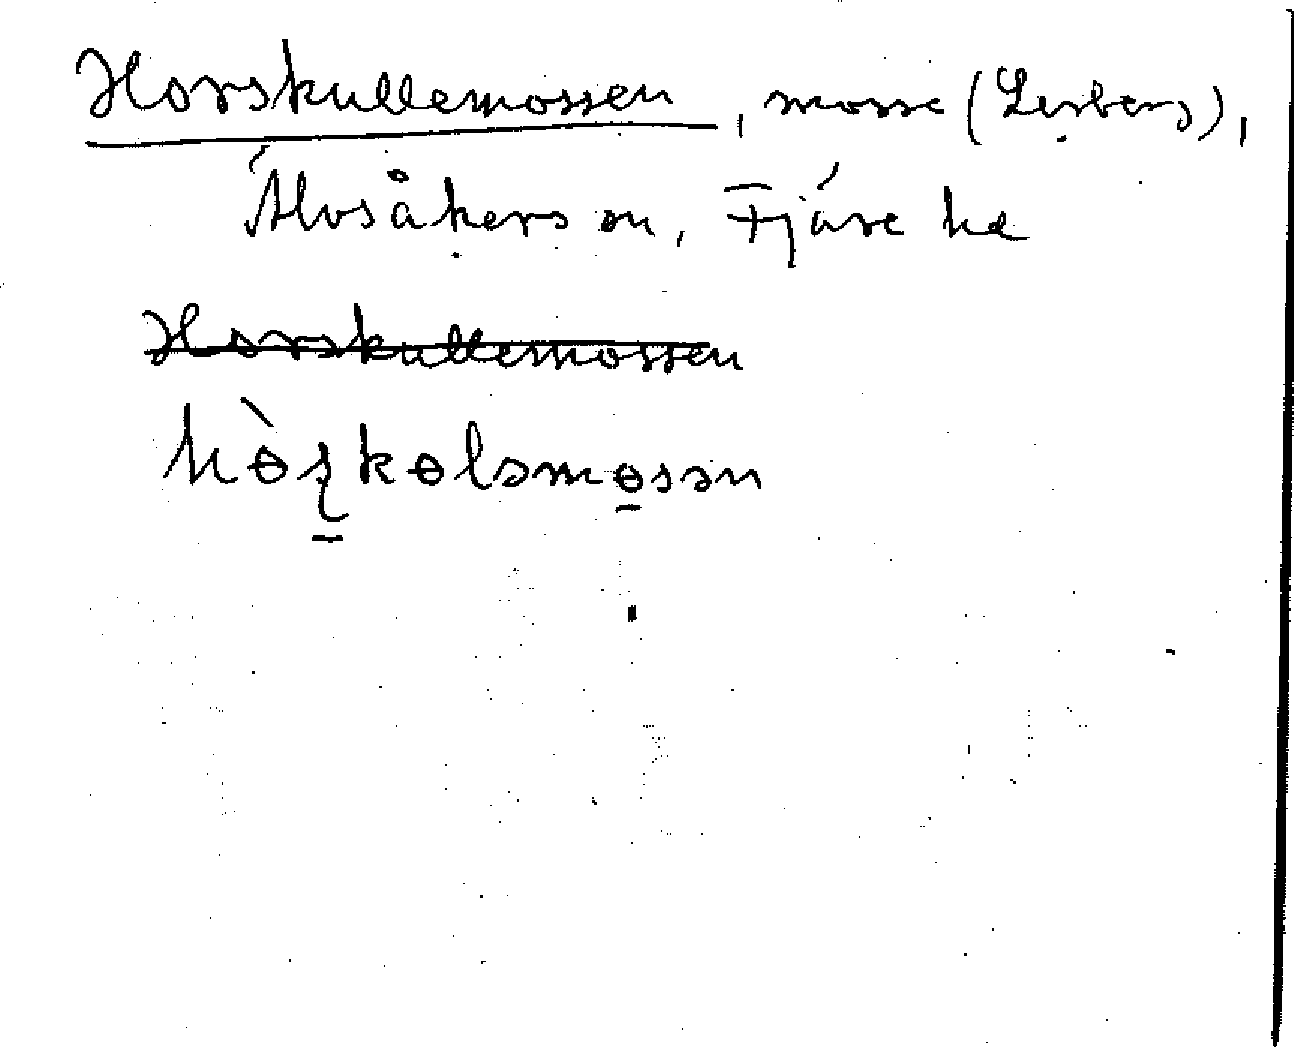 Horskullemossen, mosse (Lerberg),
Älvsåkers sn, Fjäre hd
Horskullemossen
hɵ̀ʂkɵləmɵsən